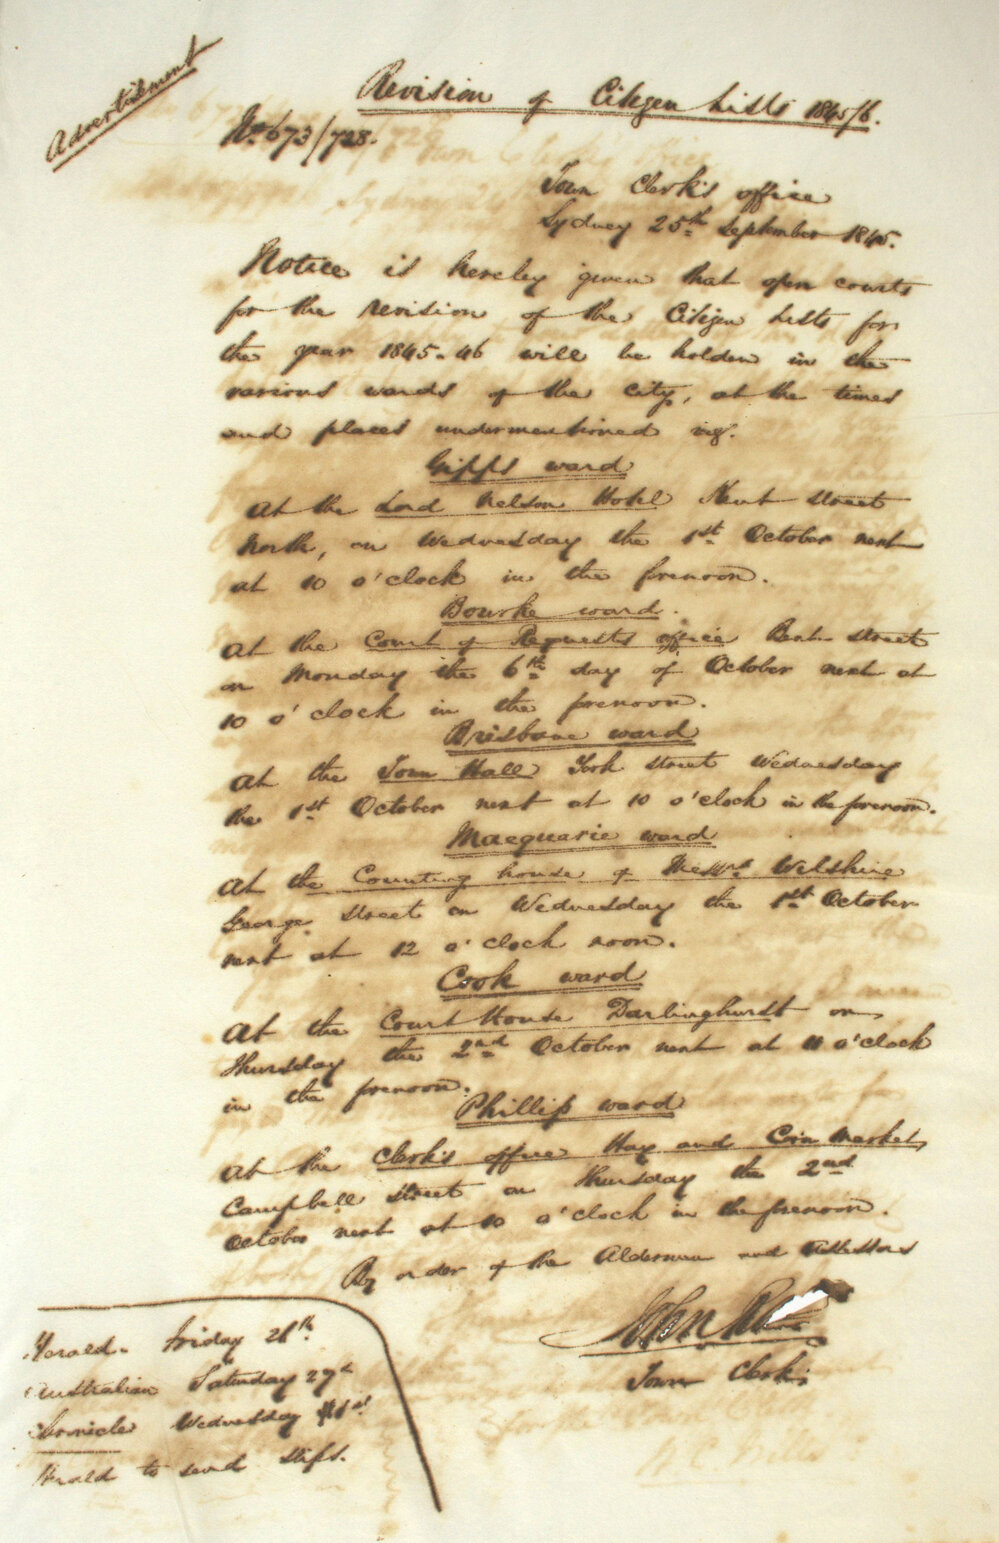 Advertisement
Revision of Citizen Lists 1845/6.
No. 673/728.
Town Clerk's office
Sydney 25th September 1845.
Notice is hereby given that open courts
for the revision of the Citizen Lists for
the year 1845-46 will be holden in the
various wards of the city, at the times
and places undermentioned viz.
Gipps ward
At the Lord Nelson Hotel Kent street
North, on Wednesday the 1st October next
at 10 o'clock in the forenoon.
Bourke ward.
At the Court of Requests office Bent street
on Monday the 6th day of October next at
10 o'clock in the forenoon.
Brisbane ward
At the Town Hall York street Wednesday
the 1st October next at 10 o'clock in the forenoon.
Macquarie ward
At the Counting house of Messrs Welshire
George street on Wednesday the 1st October
next at 12 o'clock noon.
Cook ward
At the Court House Darlinghurst on
Thursday the 2nd October next at 11 o'clock
in the forenoon.
Phillip ward
At the Clerk's office Hay and Corn Market,
Campbell street on Thursday the 2nd
October next at 10 o'clock in the forenoon.
By order of the Aldermen and Assessors
John
Town Clerk
Herald - Friday 26th
Australian Saturday 27th
Chronicle Wednesday 1st
Herald to send slips.